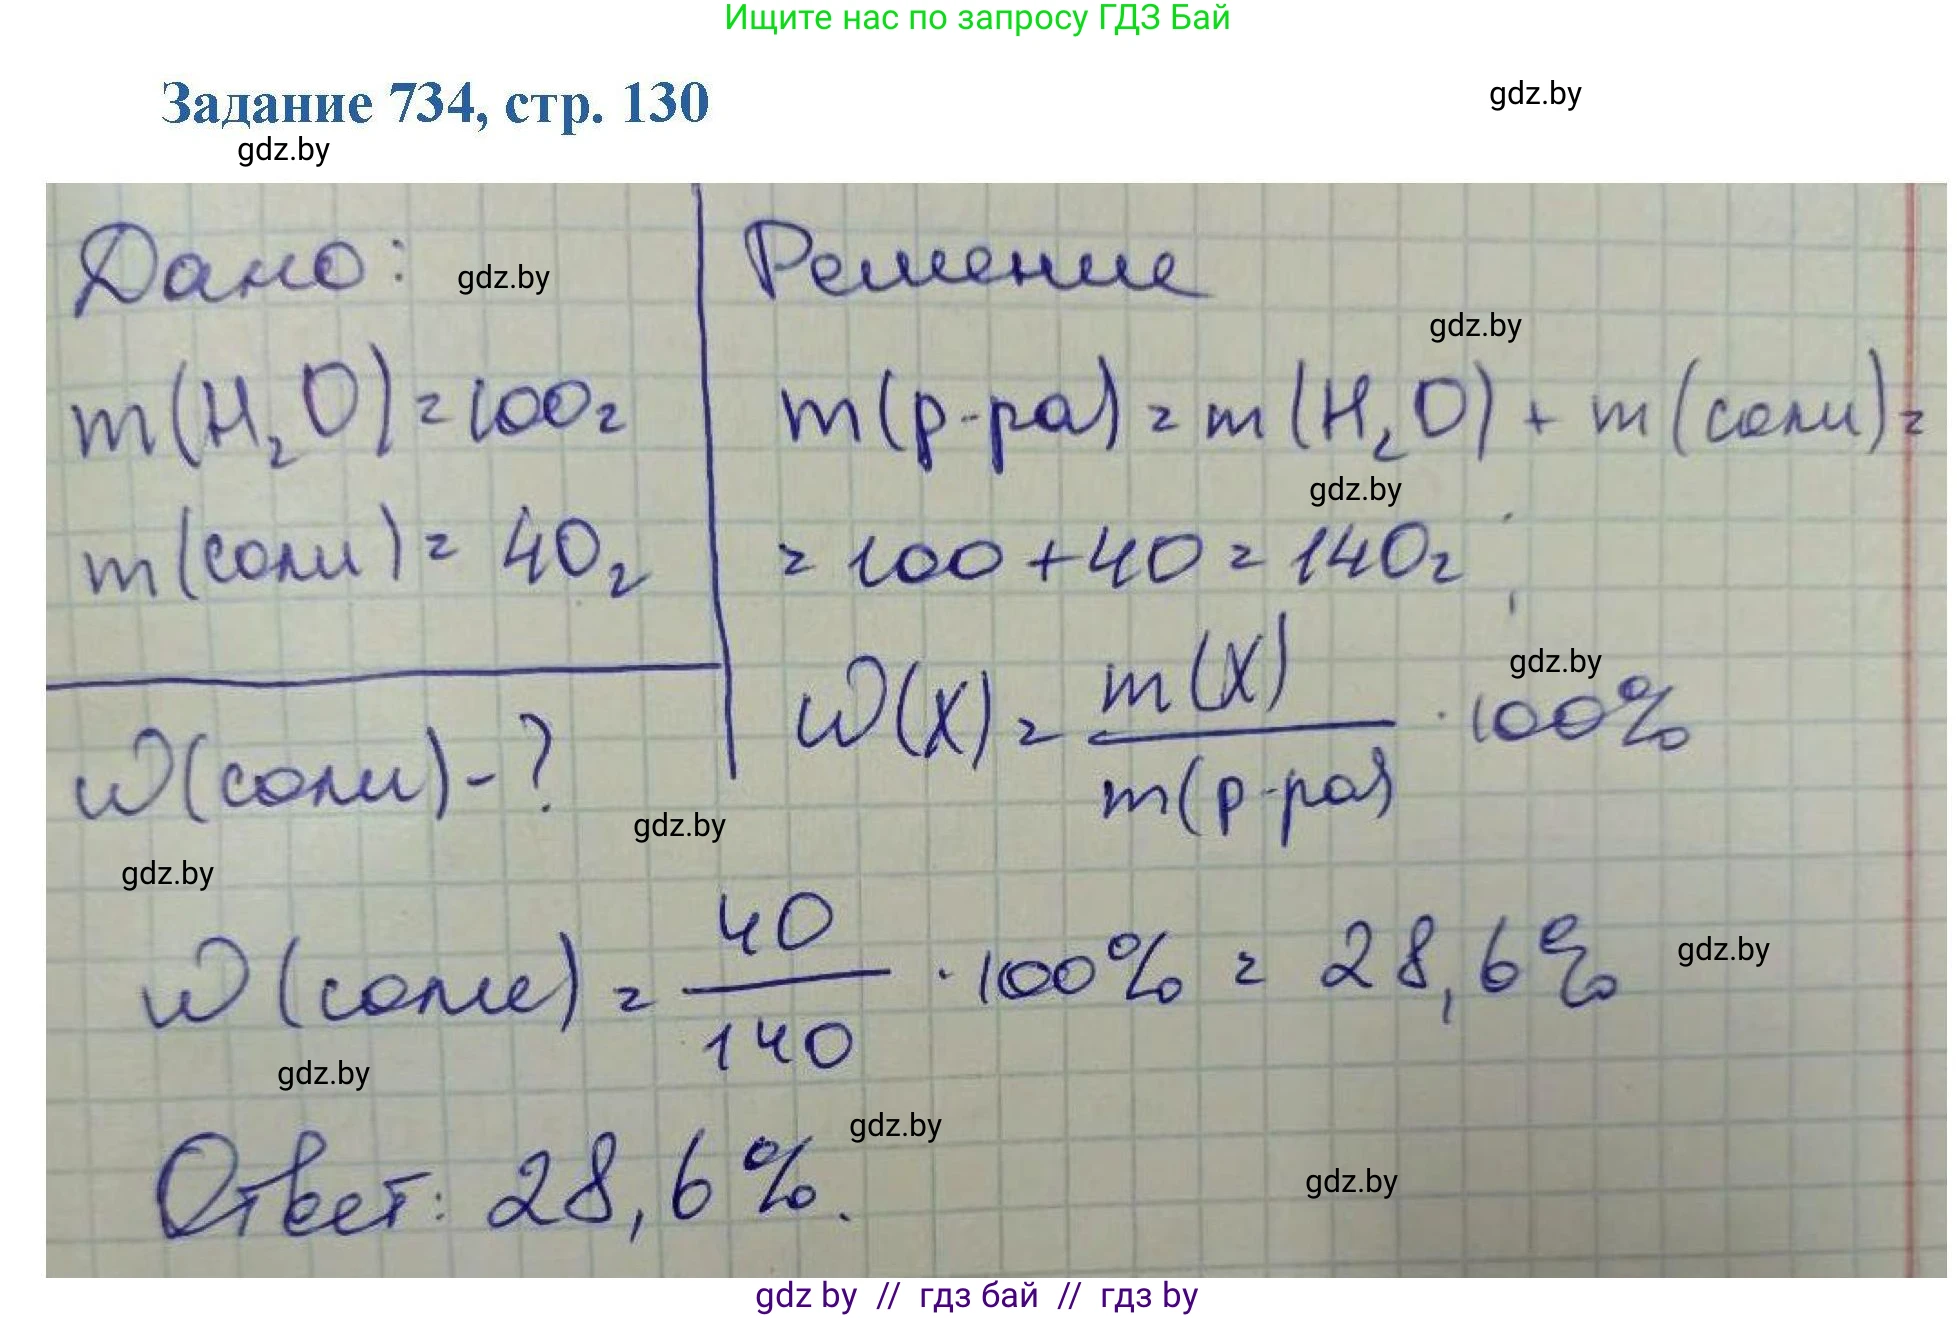 Ищите нас по запросу ГДЗ Бай
Задание 734, стр. 130
gdz.by
gdz.by
Дано:
gdz.by
m(H₂O) = 100г
m(соли) = 40г
w(соли) - ?
Решение
gdz.by
m(р-ра) = m(H₂O) + m(соли) =
gdz.by
= 100 + 40 = 140г ;
gdz.by
w(X) = m(X) / m(р-ра) · 100%
gdz.by
gdz.by
w(соли) = 40 / 140 · 100% = 28,6%
gdz.by
gdz.by
gdz.by
Ответ: 28,6%.
gdz.by
gdz by // гдз бай // гдз by